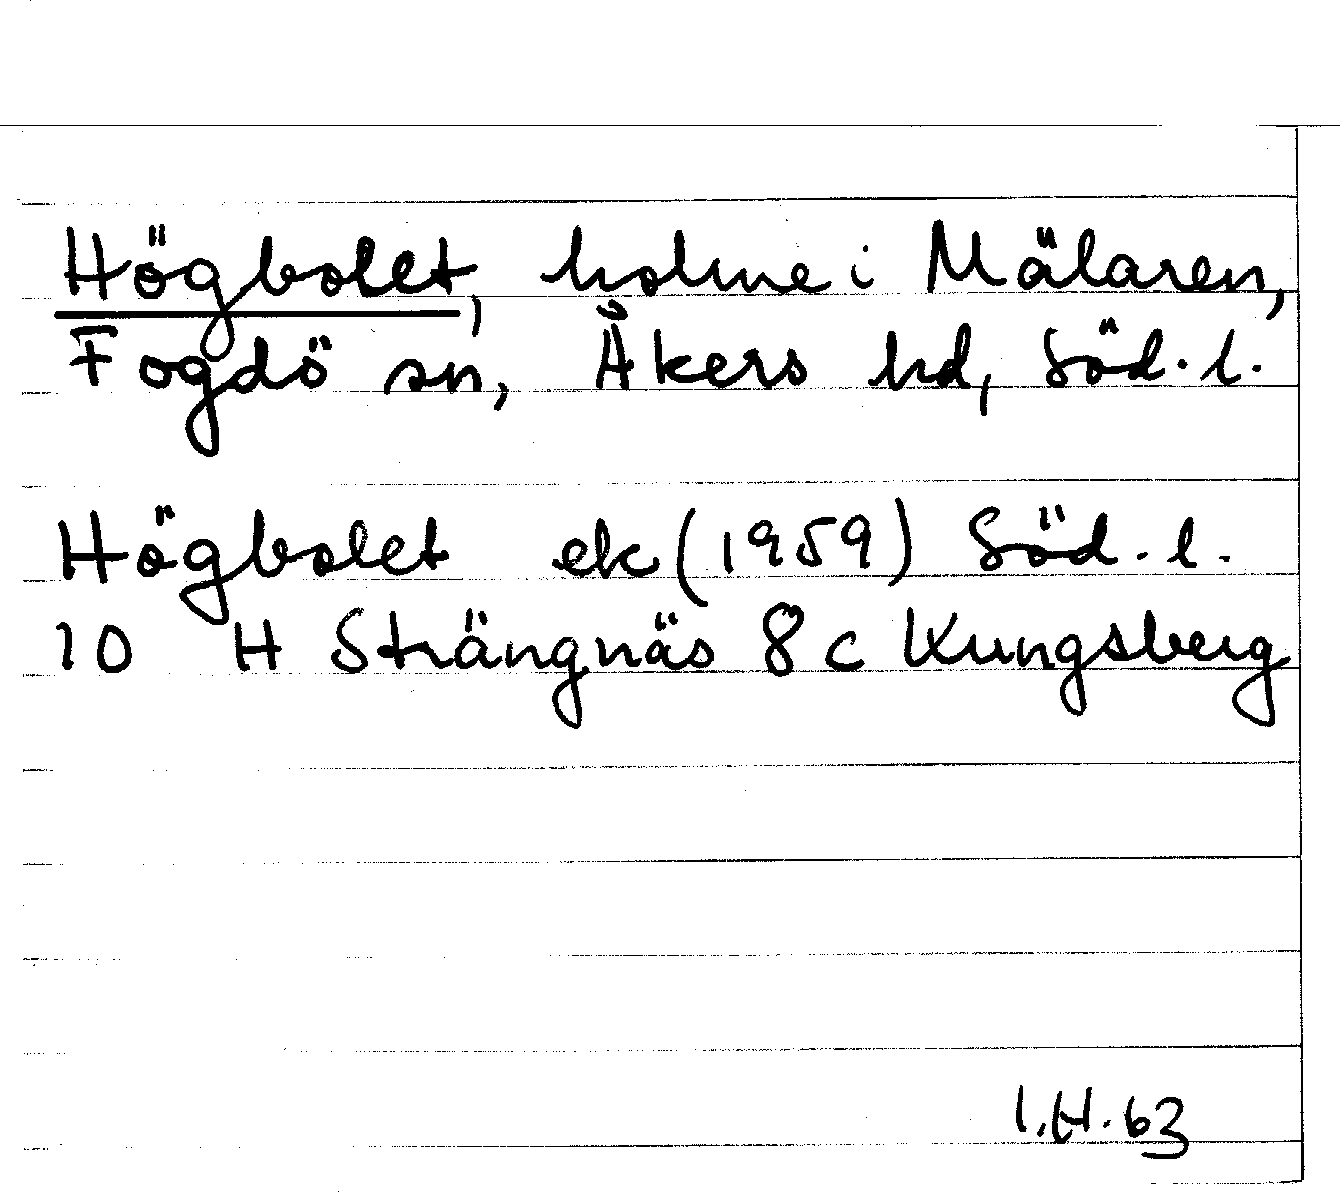 Högbolet, holme i Mälaren,
Fogdö sn, Åkers hd, Söd.l.
Högbolet ek (1959) Söd.l.
10 H Strängnäs 8 c Kungsberg
I.H. 63